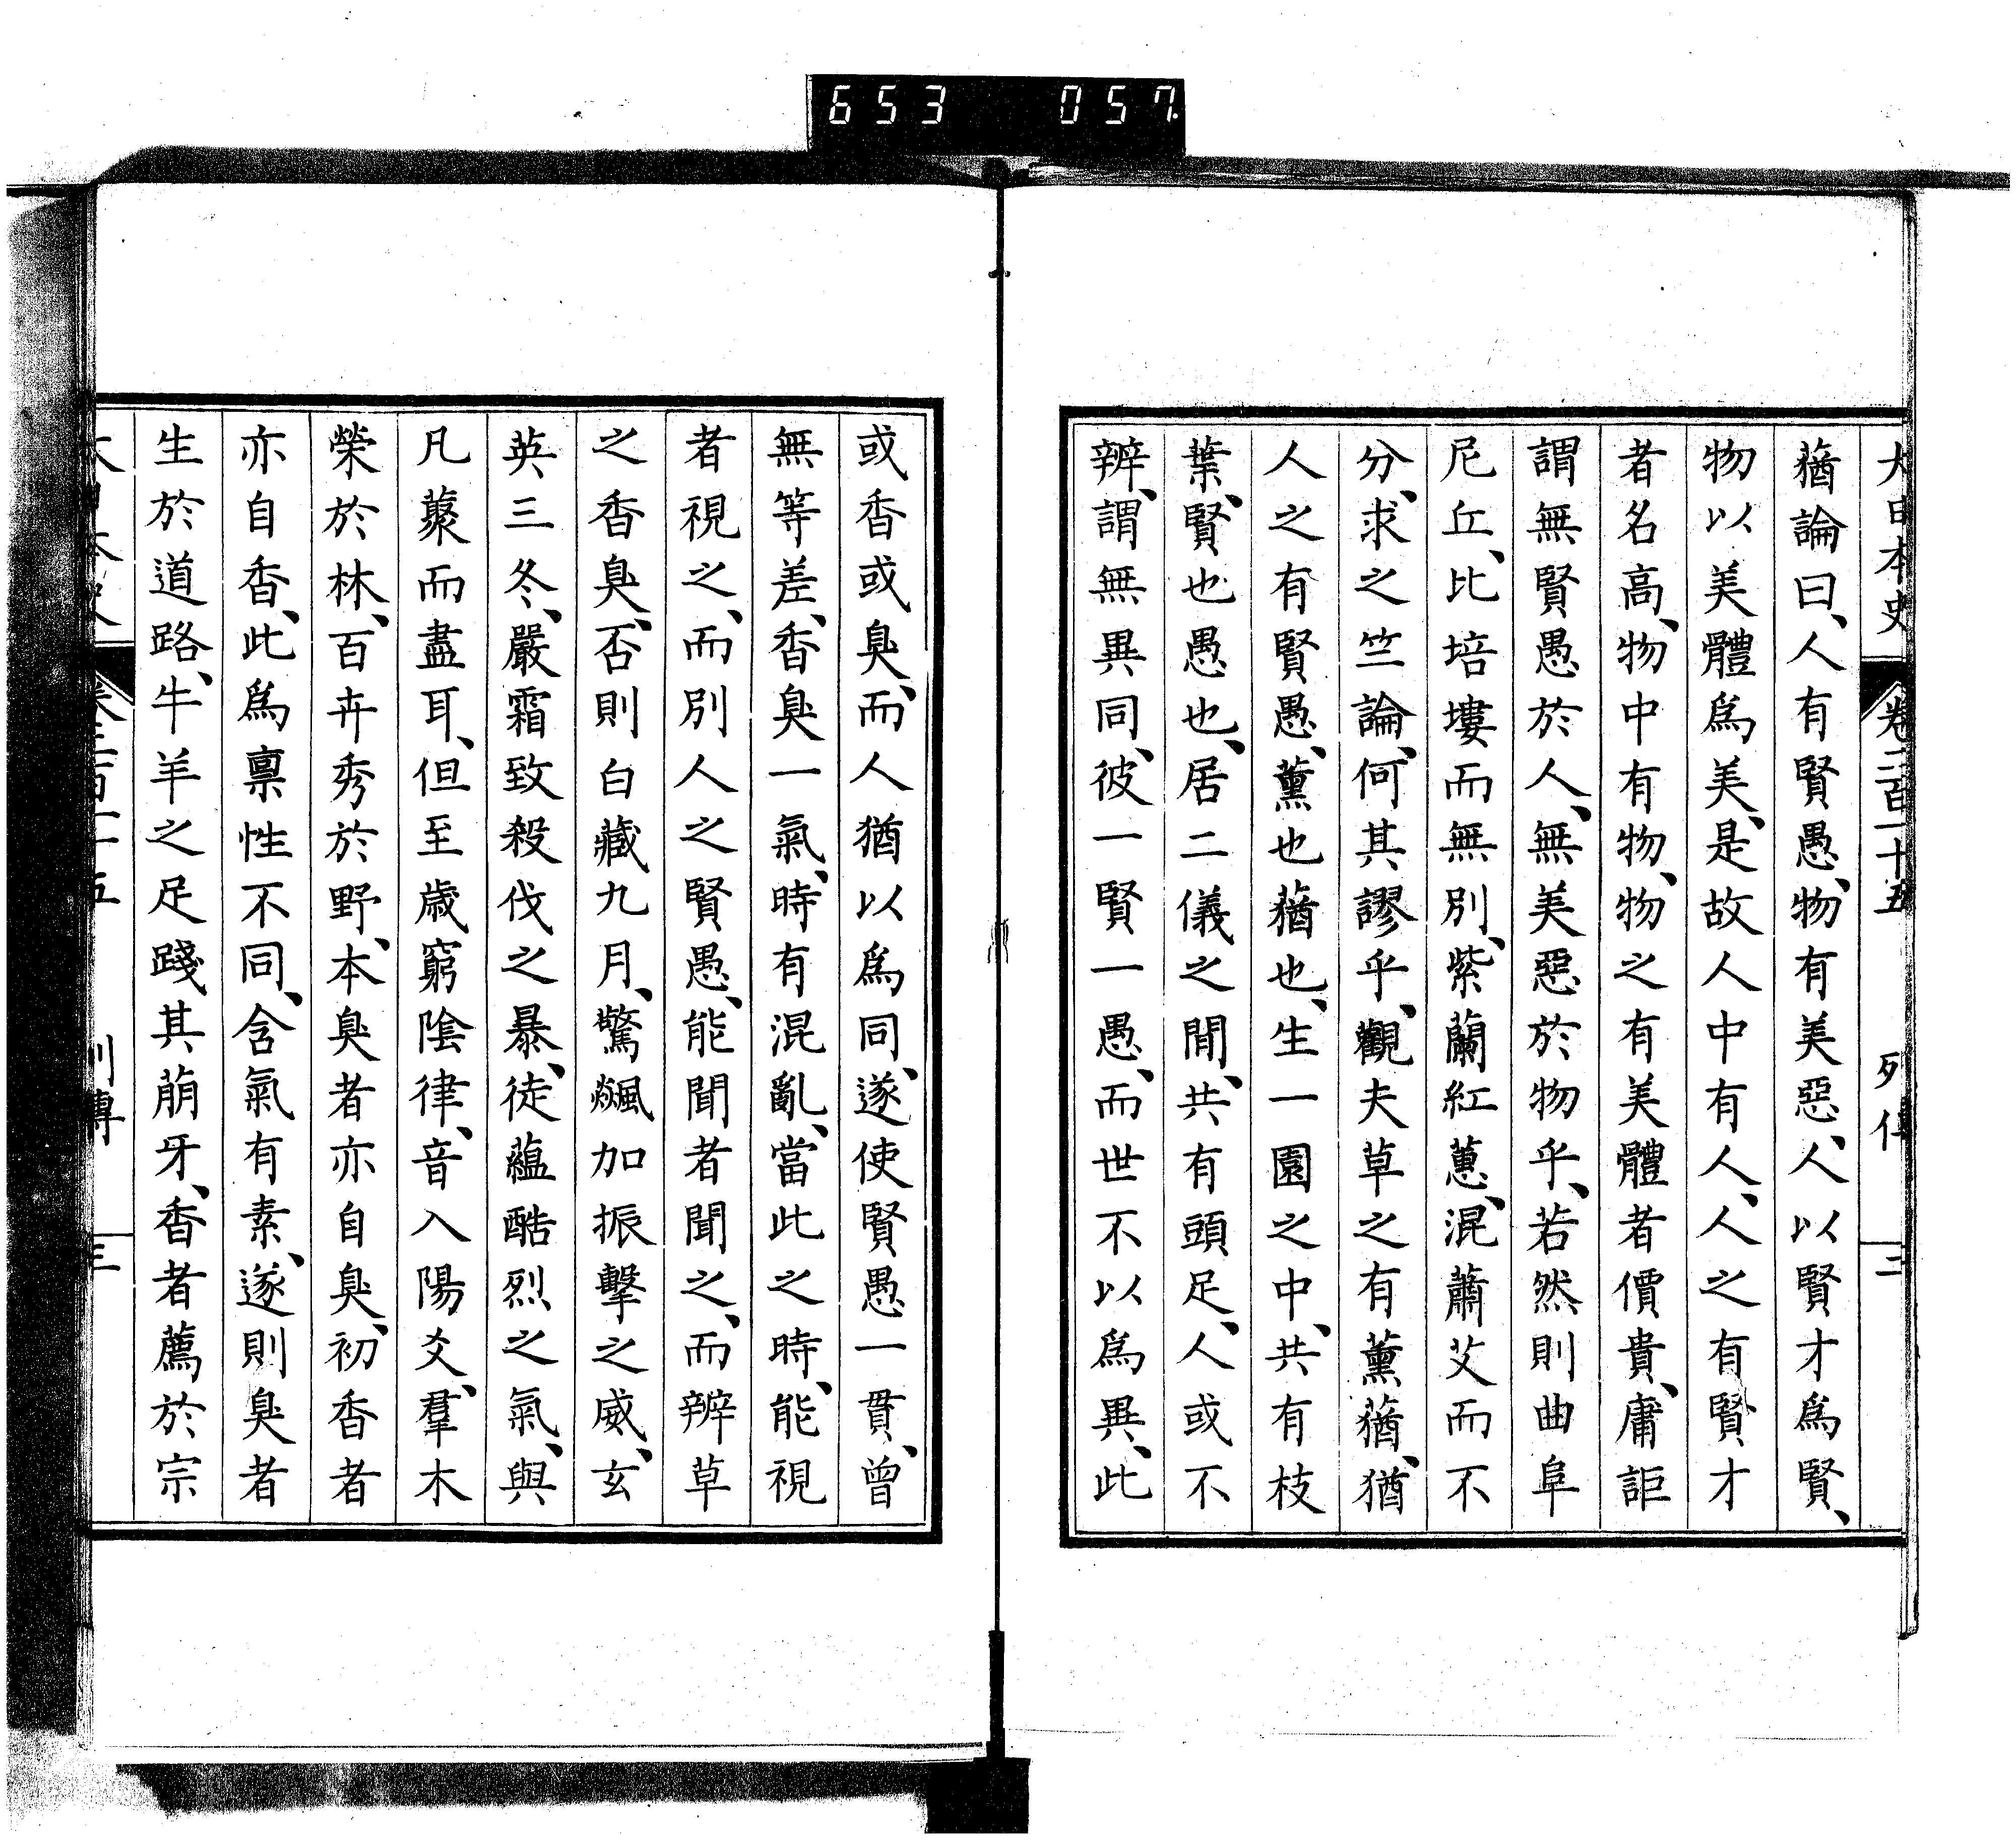 653 057.
大日本史 卷二百一十五 列傳 二
蕕論曰、人有賢愚、物有美惡、人以賢才爲賢、
物以美體爲美、是故人中有人、人之有賢才
者名高、物中有物、物之有美體者價貴、庸詎
謂無賢愚於人、無美惡於物乎、若然則曲阜
尼丘、比培塿而無別、紫蘭紅蕙、混蕭艾而不
分、求之竺論、何其謬乎、觀夫草之有薰蕕、猶
人之有賢愚、薰也蕕也、生一園之中、共有枝
葉、賢也愚也、居二儀之間、共有頭足、人或不
辨、謂無異同、彼一賢一愚、而世不以爲異、此
或香或臭、而人猶以爲同、遂使賢愚一貫、曾
無等差、香臭一氣、時有混亂、當此之時、能視
者視之、而別人之賢愚、能聞者聞之、而辨草
之香臭、否則白藏九月、驚飆加振擊之威、玄
英三冬、嚴霜致殺伐之暴、徒蘊酷烈之氣、與
凡藂而盡耳、但至歲窮陰律、音入陽爻、羣木
榮於林、百卉秀於野、本臭者亦自臭、初香者
亦自香、此爲禀性不同、含氣有素、遂則臭者
生於道路、牛羊之足踐其萠牙、香者薦於宗
大日本史 卷二百一十五 列傳 三